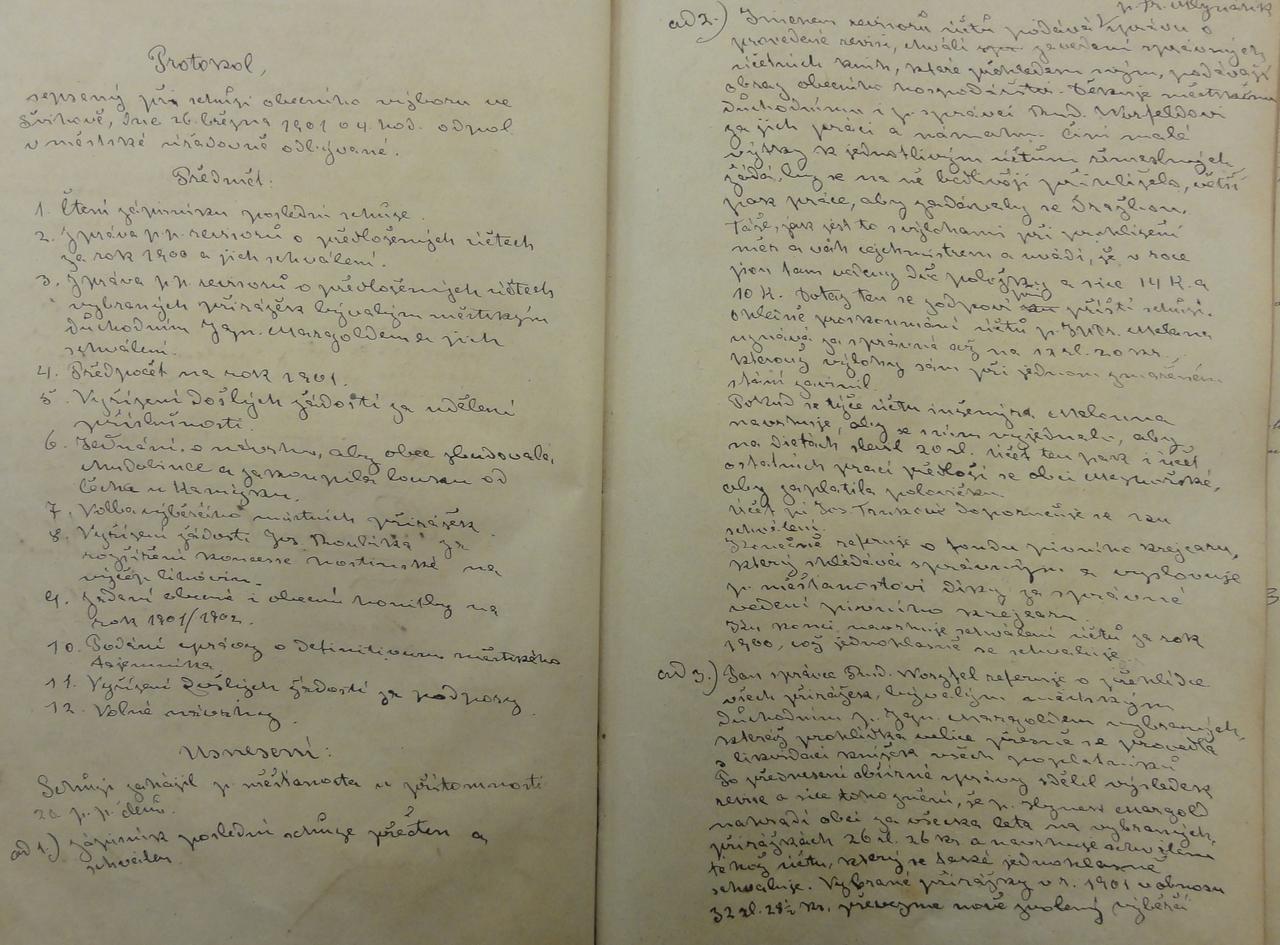 Protokol,
sepsaný při schůzi obecního výboru ve
Švihově, dne 26. března 1901 o 4. hod. odpol
v městské úřadovně odbývané.
Předmět:
1. Čtení zápisníku poslední schůze.
2. Zpráva p.p. revisorů o předložených účtech
za rok 1900 a jich schválení.
3. Zpráva p.p. revisorů o předložených účtech
vybraných přirážek bývalým městským
důchodním Ign. Margoldem a jich
schválení.
4. Předpočet na rok 1901.
5. Vyřízení došlých žádostí za udělení
příslušnosti.
6. Jednání o návrhu, aby obec zbudovala
chudobinec a zakoupila louku od
Čecha u Kamýku.
7. Volba výběrčího místních přirážek
8. Vyřízení žádosti Jos. za
rozšíření koncesse hostinské na
výčep lihovin.
9. Zadání obecné i obecní honitby na
rok 1901/1902.
10. Podání zprávy o definitivum městského
tajemníka.
11. Vyřízení došlých žádostí za podpory.
12. Volné návrhy.
Usnesení:
Schůzi zahájil p. měšťanosta u přítomnosti
20 p.p. členů.
ad 1.) Zápisník poslední schůze přečten a
schválen.
p. Fr. Mlynařík
ad 2.) Jmenem revisorů účtů podává zprávu o
provedené revisi, chválí zavedení správných
účetních knih, které přehledem svým, podávají
obraz obecního hospodářství. Děkuje městskému
důchodnímu i p. správci Ferd. Worfeldovi
za jich práci a námahu. Činí malé
výtky k jednotlivým účtům řemeslných
žádá, by se na ně bedlivěji přihlíželo, větší
pak práce, aby zadávaly se dražbou.
Táže, jak jest to s výlohami při prohlížení
měr a vah cejchmistrem a uvádí, že v roce
jsou tam vedeny dvě položky a sice 14 K a
10 K. Dotaz ten se zodpoví příští schůzi.
Ohledně proskoumání účtů p. JUDr. Melana
uznává za správné až na 12 zl. 20 kr.,
kterouž výlohy sám při jednom zmařeném
stání zavinil.
Pokud se týče účtu inženýra Melouna
navrhuje, aby se s ním vyjednalo, aby
na dietách slevil 20 zl. Účet ten pak i účet
ostatních prací předloží se obci
aby zaplatila polovičku.
Účet p. Jos. doporučuje se ku
schválení.
Konečně referuje o fondu pivního krejcaru,
který shledává správným a vyslovuje
p. měšťanostovi díky za správné
vedení pivního krejcaru.
Ku konci navrhuje schválení účtů za rok
1900, což jednohlasně se schvaluje.
ad 3.) Pan správce Ferd. Worzfel referuje o přehlídce
všech přirážek, bývalým městským
důchodním p. Ign. Margoldem vybraných,
kteráž prohlídka velice přesně se provedla
s likvidací knížek všech poplatníků.
Po přednesení obšírné zprávy sdělil výsledek
revise a sice toho znění, že p. Ignác Margold
nahradí obci za všecka leta na vybraných
přirážkách 26 zl. 26 kr a navrhuje schválení
téhož účtu, který se také jednohlasně
schvaluje. Vybrané přirážky v r. 1901 v obnosu
32 zl. 28½ kr. převezme nově zvolený výběrčí